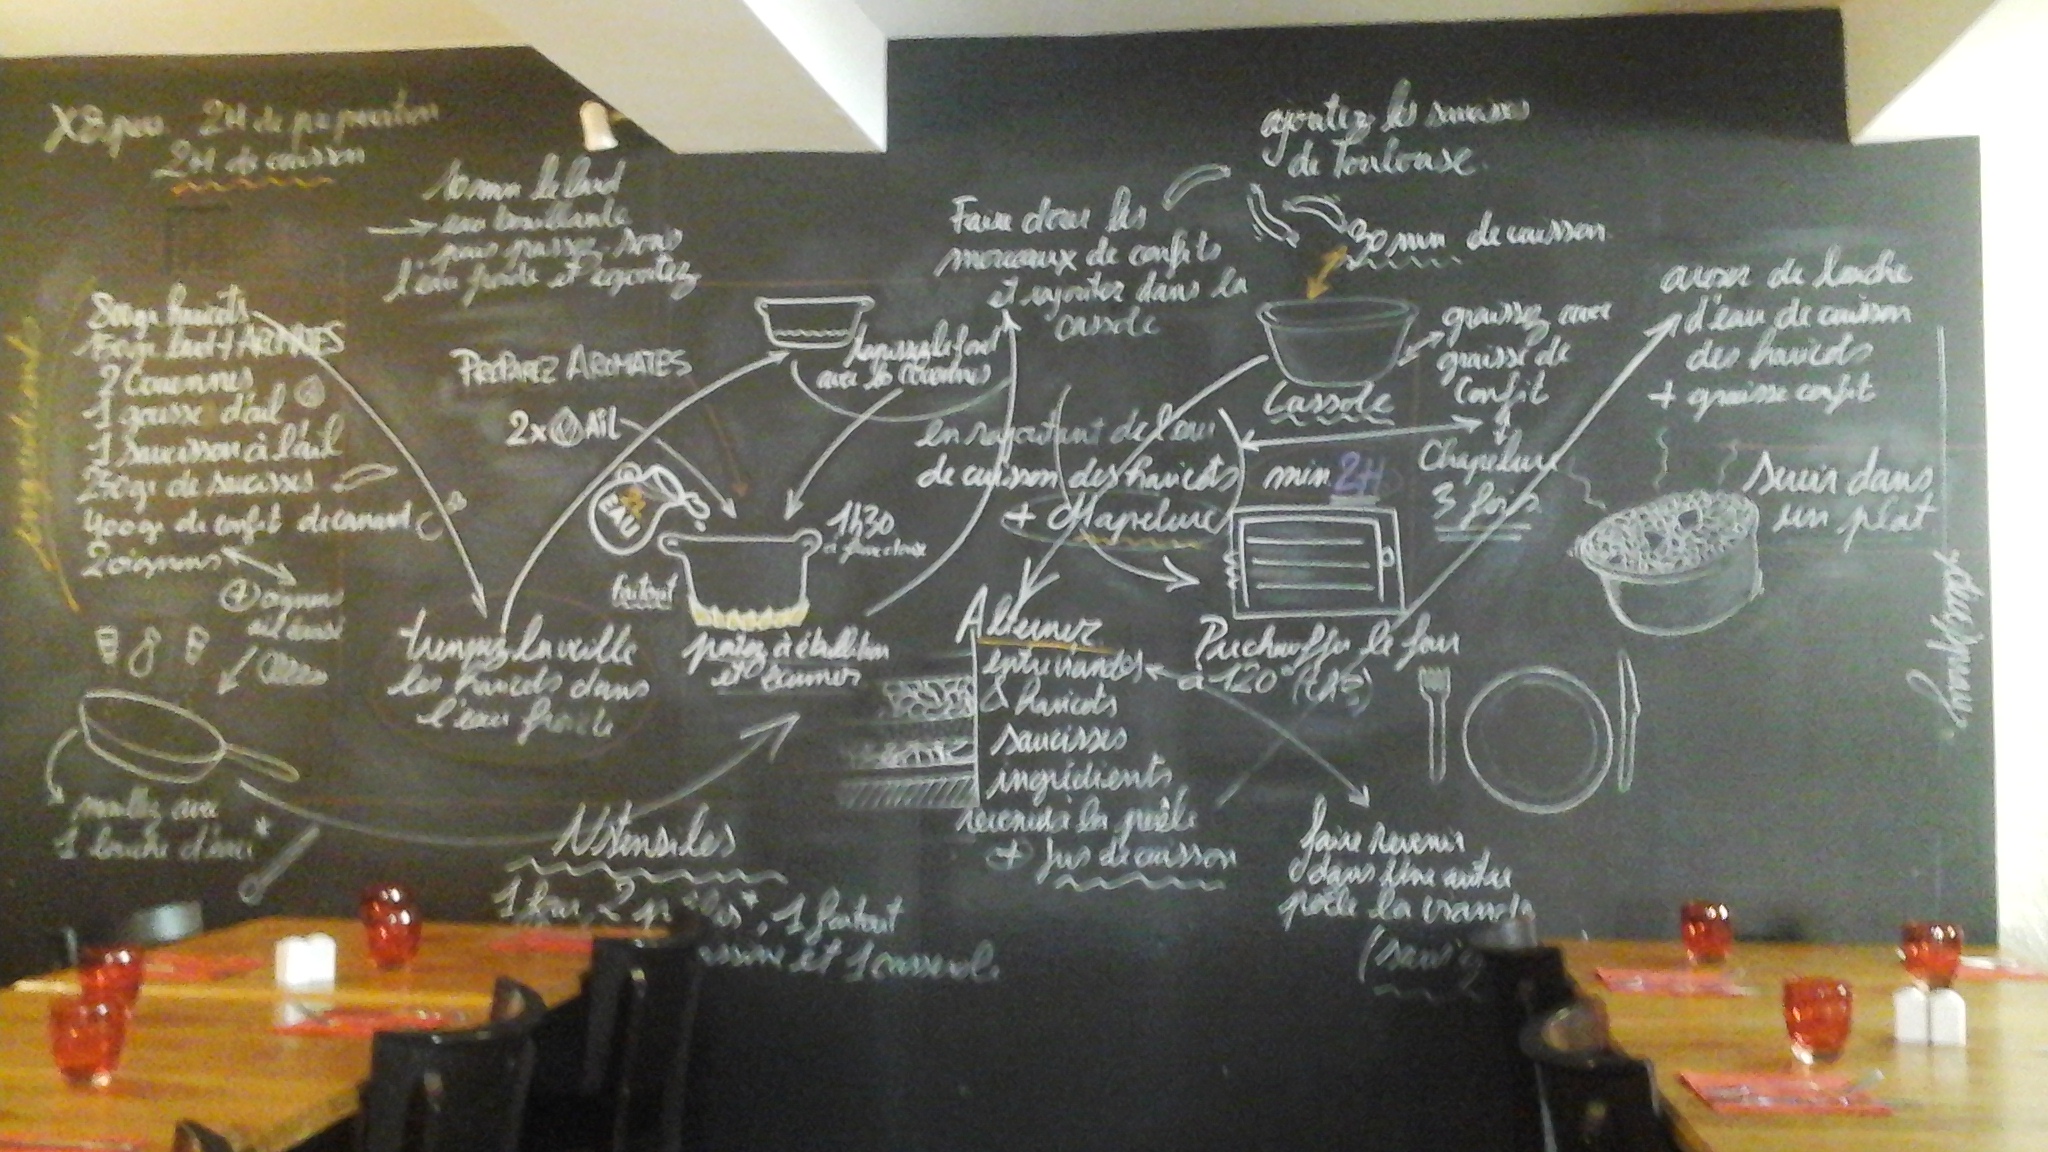 X8 pers 2H de préparation
2H de cuisson
800gr haricots
150gr lard + AROMATES
2 Couennes
1 gousse d'ail
1 saucisson à l'ail
250gr de saucisses
400gr de confit de canard
2 oignons
+ oignons
ail écrasé
mouillez avec
1 louche d'eau *
10 mn le lard
eau bouillante
puis passez sous
l'eau froide et egoutez
PRÉPAREZ AROMATES
2x AIL
EAU
faitout
1h30
à feux doux
portez à ébullition
et écumer
trempez la veille
les haricots dans
l'eau froide
Ustensiles
1 four, 2 *, 1 faitout
et 1 casserole
tapissez le fond
avec les couennes
Faire dorer les
morceaux de confits
et rajouter dans la
cassole
en rajoutant de l'eau
de cuisson des haricots
+ chapelure
Alterner
entre viandes
& haricots
saucisses
ingrédients
revenus à la poêle
+ jus de cuisson
ajoutez les saucisses
de Toulouse
30 mn de cuisson
Cassole
graissez avec
graisse de
confit
+
Chapelure
3 fois
min 2H
Préchauffer le four
à 120°
faire revenir
dans une autre
poêle la viande
(sans
arroser de louche
d'eau de cuisson
des haricots
+ graisse confit
Servir dans
un plat